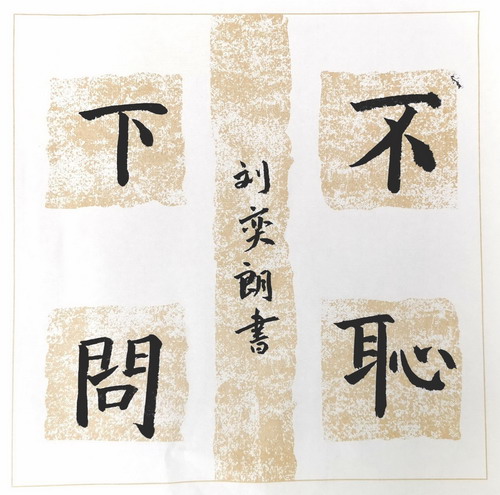 不恥
下問
刘奕朗書